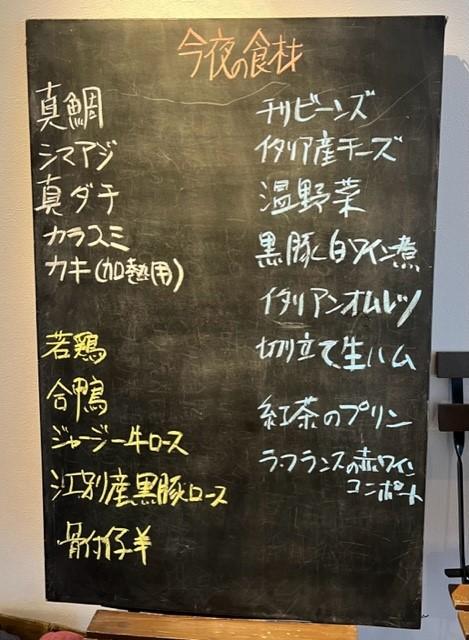 今夜の食材
真鯛
シマアジ
真ダチ
カラスミ
カキ(加熱用)
若鶏
合鴨
ジャージー牛ロース
江別産黒豚ロース
骨付仔羊
チリビーンズ
イタリア産チーズ
温野菜
黒豚白ワイン煮
イタリアンオムレツ
切り立て生ハム
紅茶のプリン
ラ・フランスの赤ワイン
コンポート